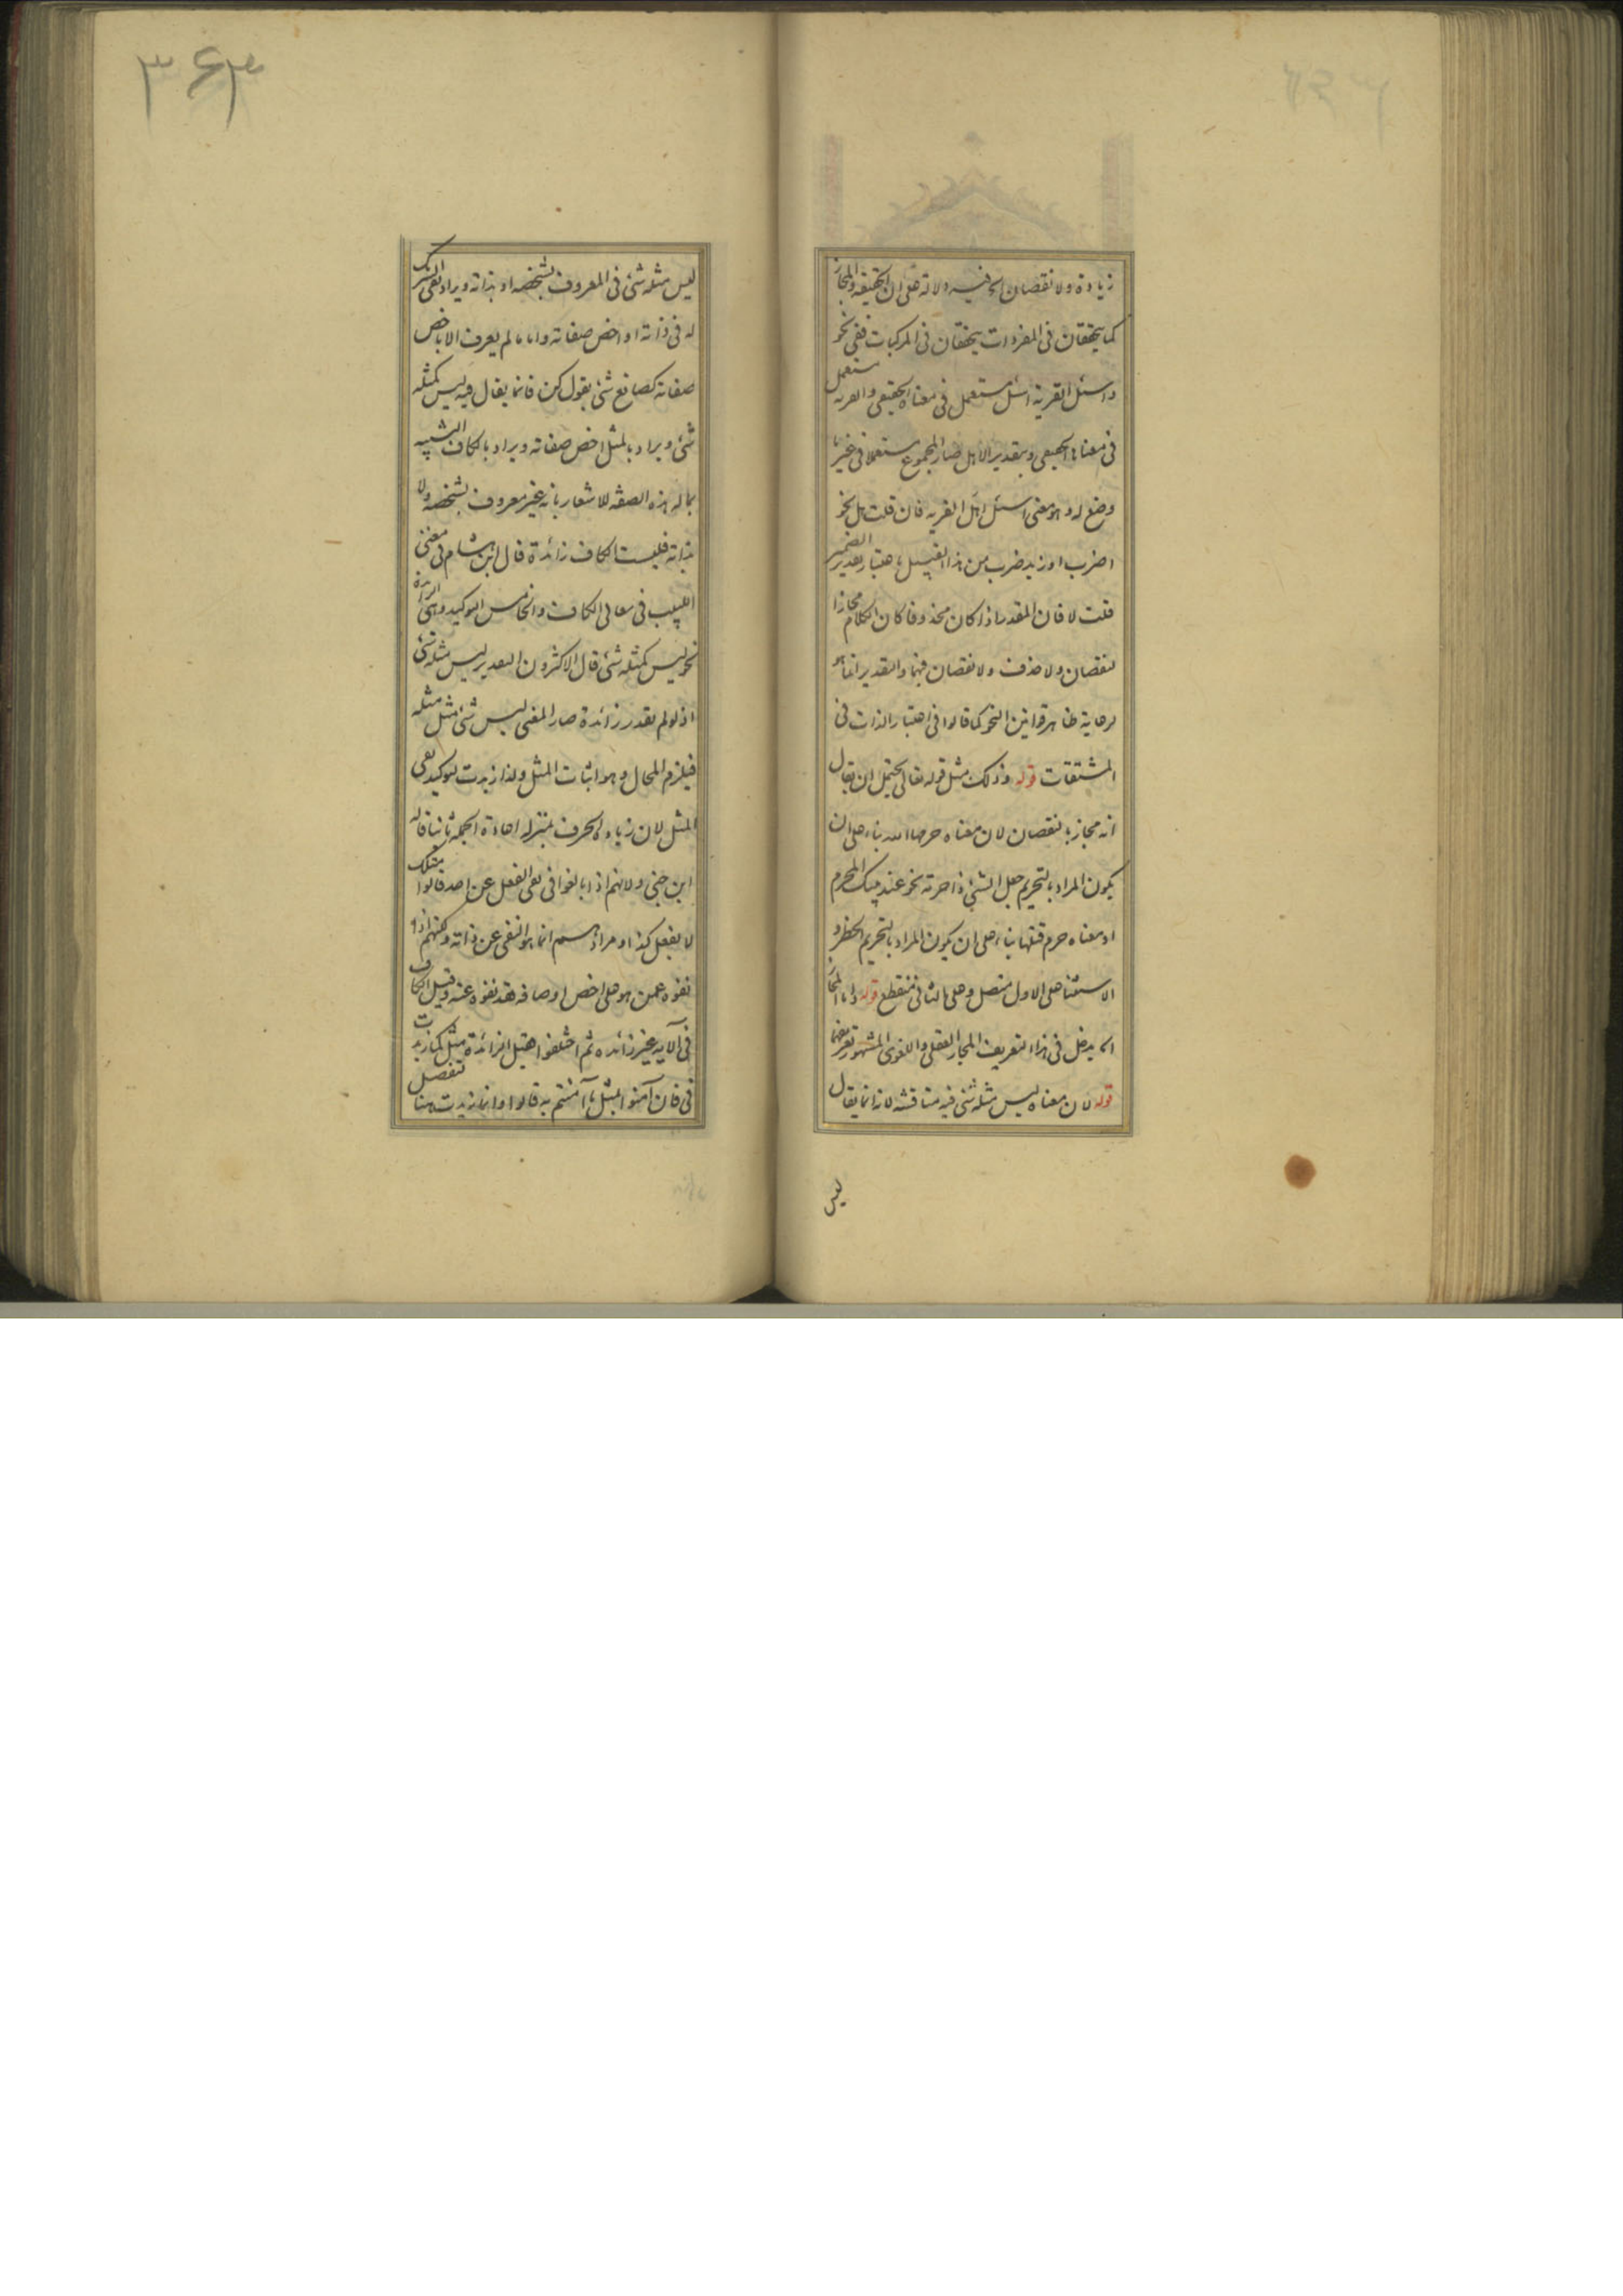 زيادة ولا نقصان الخ فيه دلالة على ان الحقيقة والمجاز
كما يتحققان في المفردات يتحققان في المركبات ففي نحو
واسئل القرية اسئل مستعمل في معناه الحقيقي والقرية مستعمل
في معناها الحقيقي وبتقدير الاهل صار المجموع مستعملا في غير ما
وضع له وهو معنى اسئل اهل القرية فان قلت هل نحو
اضرب او زيد ضرب من هذا القبيل باعتبار تقدير الضمير
قلت لا فان المقدر اذا كان محذوفا كان الكلام مجازا
لنقصان ولا حذف ولا نقصان فيهما والتقدير انما هو
لرعاية ظاهر قوانين النحو كما قالوا في اعتبار الذات في
المشتقات قوله وذلك مثل قوله تعالى يحتمل ان يقال
انه مجاز بالنقصان لان معناه حرمها الله بناء على ان
يكون المراد بالتحريم جعل الشيء ذا حرمة نحو عند بيتك المحرم
او معناه حرم قتلها بناء على ان يكون المراد بالتحريم الحظر و
الاستثنا على الاول متصل وعلى الثاني منقطع قوله واما المجاز
الخ يدخل في هذا التعريف المجاز العقلي واللغوي المشهور تعريفهما
قوله لان معناه ليس مثله شئ فيه مناقشة لانه انما يقال
ليس
٣٤٣
ليس مثله شئ في المعروف بشخصه او بذاته ويراد نفي الشريك
له في ذاته او اخص صفاته واما ما لم يعرف الا باخص
صفاته كصانع شئ بقول كن فانما يقال فيه ليس كمثله
شئ ويراد بالمثل اخص صفاته ويراد بالكاف التشبيه
بما له هذه الصفة للاشعار بانه غير معروف بشخصه ولا
بذاته فليست الكاف زائدة قال ابن هشام في مغني
اللبيب في معاني الكاف والخامس التوكيد وهي الزائدة
نحو ليس كمثله شئ قال الاكثرون التقدير ليس مثله شئ
اذ لو لم تقدر زائدة صار المعنى ليس شئ مثل مثله
فيلزم المحال وهو اثبات المثل ولذا زيدت لتوكيد نفي
المثل لان زيادة الحرف بمنزلة اعادة الجملة ثانيا قاله
ابن جني ولانهم اذا بالغوا في نفي الفعل عن احد قالوا مثلك
لا يفعل كذا ومرادهم انما هو النفي عن ذاته ولكنهم اذا
نفوه عمن هو على اخص اوصافه فقد نفوه عنه وقيل الكاف
في الآية غير زائدة ثم اختلفوا فقيل الزائدة مثل كما زيدت
في فان آمنوا بمثل ما آمنتم به قالوا وانما زيدت هنا لتفصل